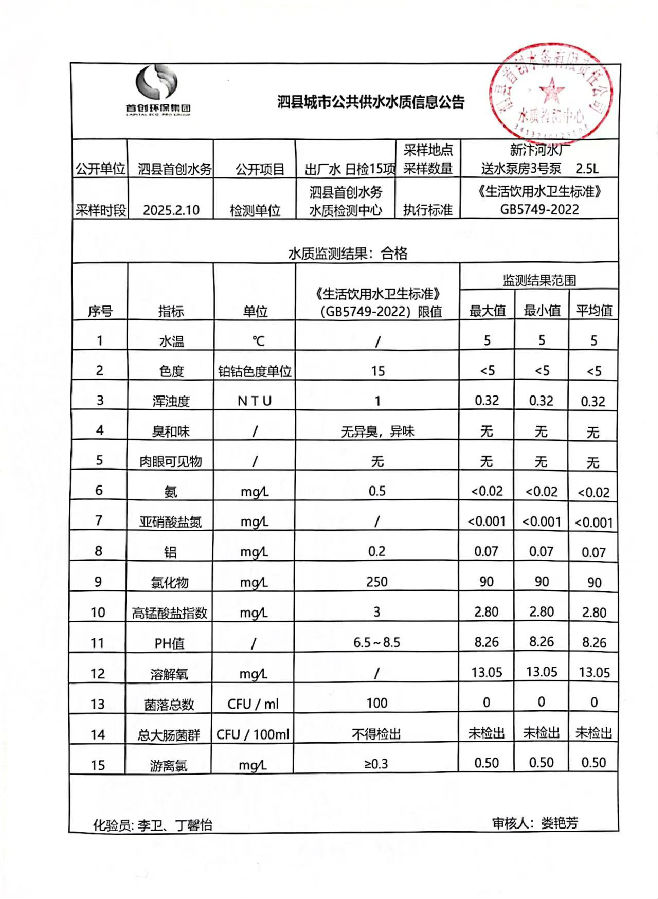 首创环保集团
CAPITAL ECO-PRO GROUP
泗县城市公共供水水质信息公告
泗县首创水务有限责任公司
水质检测中心
公开单位 泗县首创水务 公开项目 出厂水 日检15项 采样地点 采样数量 新汴河水厂 送水泵房3号泵 2.5L
采样时段 2025.2.10 检测单位 泗县首创水务 水质检测中心 执行标准 《生活饮用水卫生标准》 GB5749-2022
水质监测结果：合格
序号 指标 单位 《生活饮用水卫生标准》（GB5749-2022）限值 监测结果范围
最大值 最小值 平均值
1 水温 ℃ / 5 5 5
2 色度 铂钴色度单位 15 <5 <5 <5
3 浑浊度 NTU 1 0.32 0.32 0.32
4 臭和味 / 无异臭，异味 无 无 无
5 肉眼可见物 / 无 无 无 无
6 氨 mg/L 0.5 <0.02 <0.02 <0.02
7 亚硝酸盐氮 mg/L / <0.001 <0.001 <0.001
8 铝 mg/L 0.2 0.07 0.07 0.07
9 氯化物 mg/L 250 90 90 90
10 高锰酸盐指数 mg/L 3 2.80 2.80 2.80
11 PH值 / 6.5~8.5 8.26 8.26 8.26
12 溶解氧 mg/L / 13.05 13.05 13.05
13 菌落总数 CFU / ml 100 0 0 0
14 总大肠菌群 CFU / 100ml 不得检出 未检出 未检出 未检出
15 游离氯 mg/L ≥0.3 0.50 0.50 0.50
化验员: 李卫、丁馨怡 审核人：娄艳芳